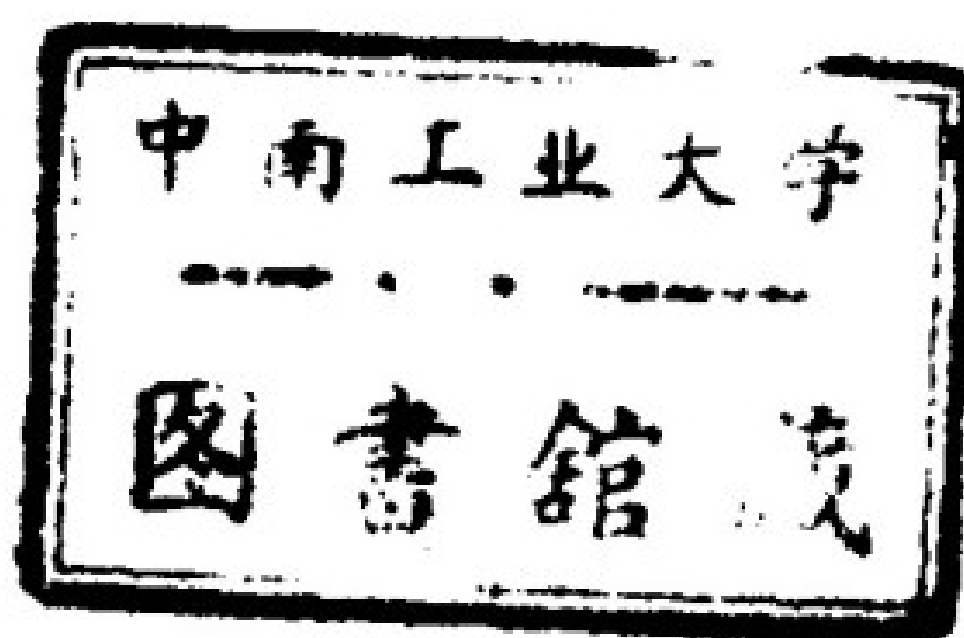 中南工业大学
图書館